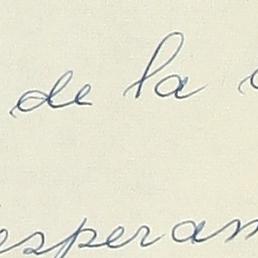 de la
esperam